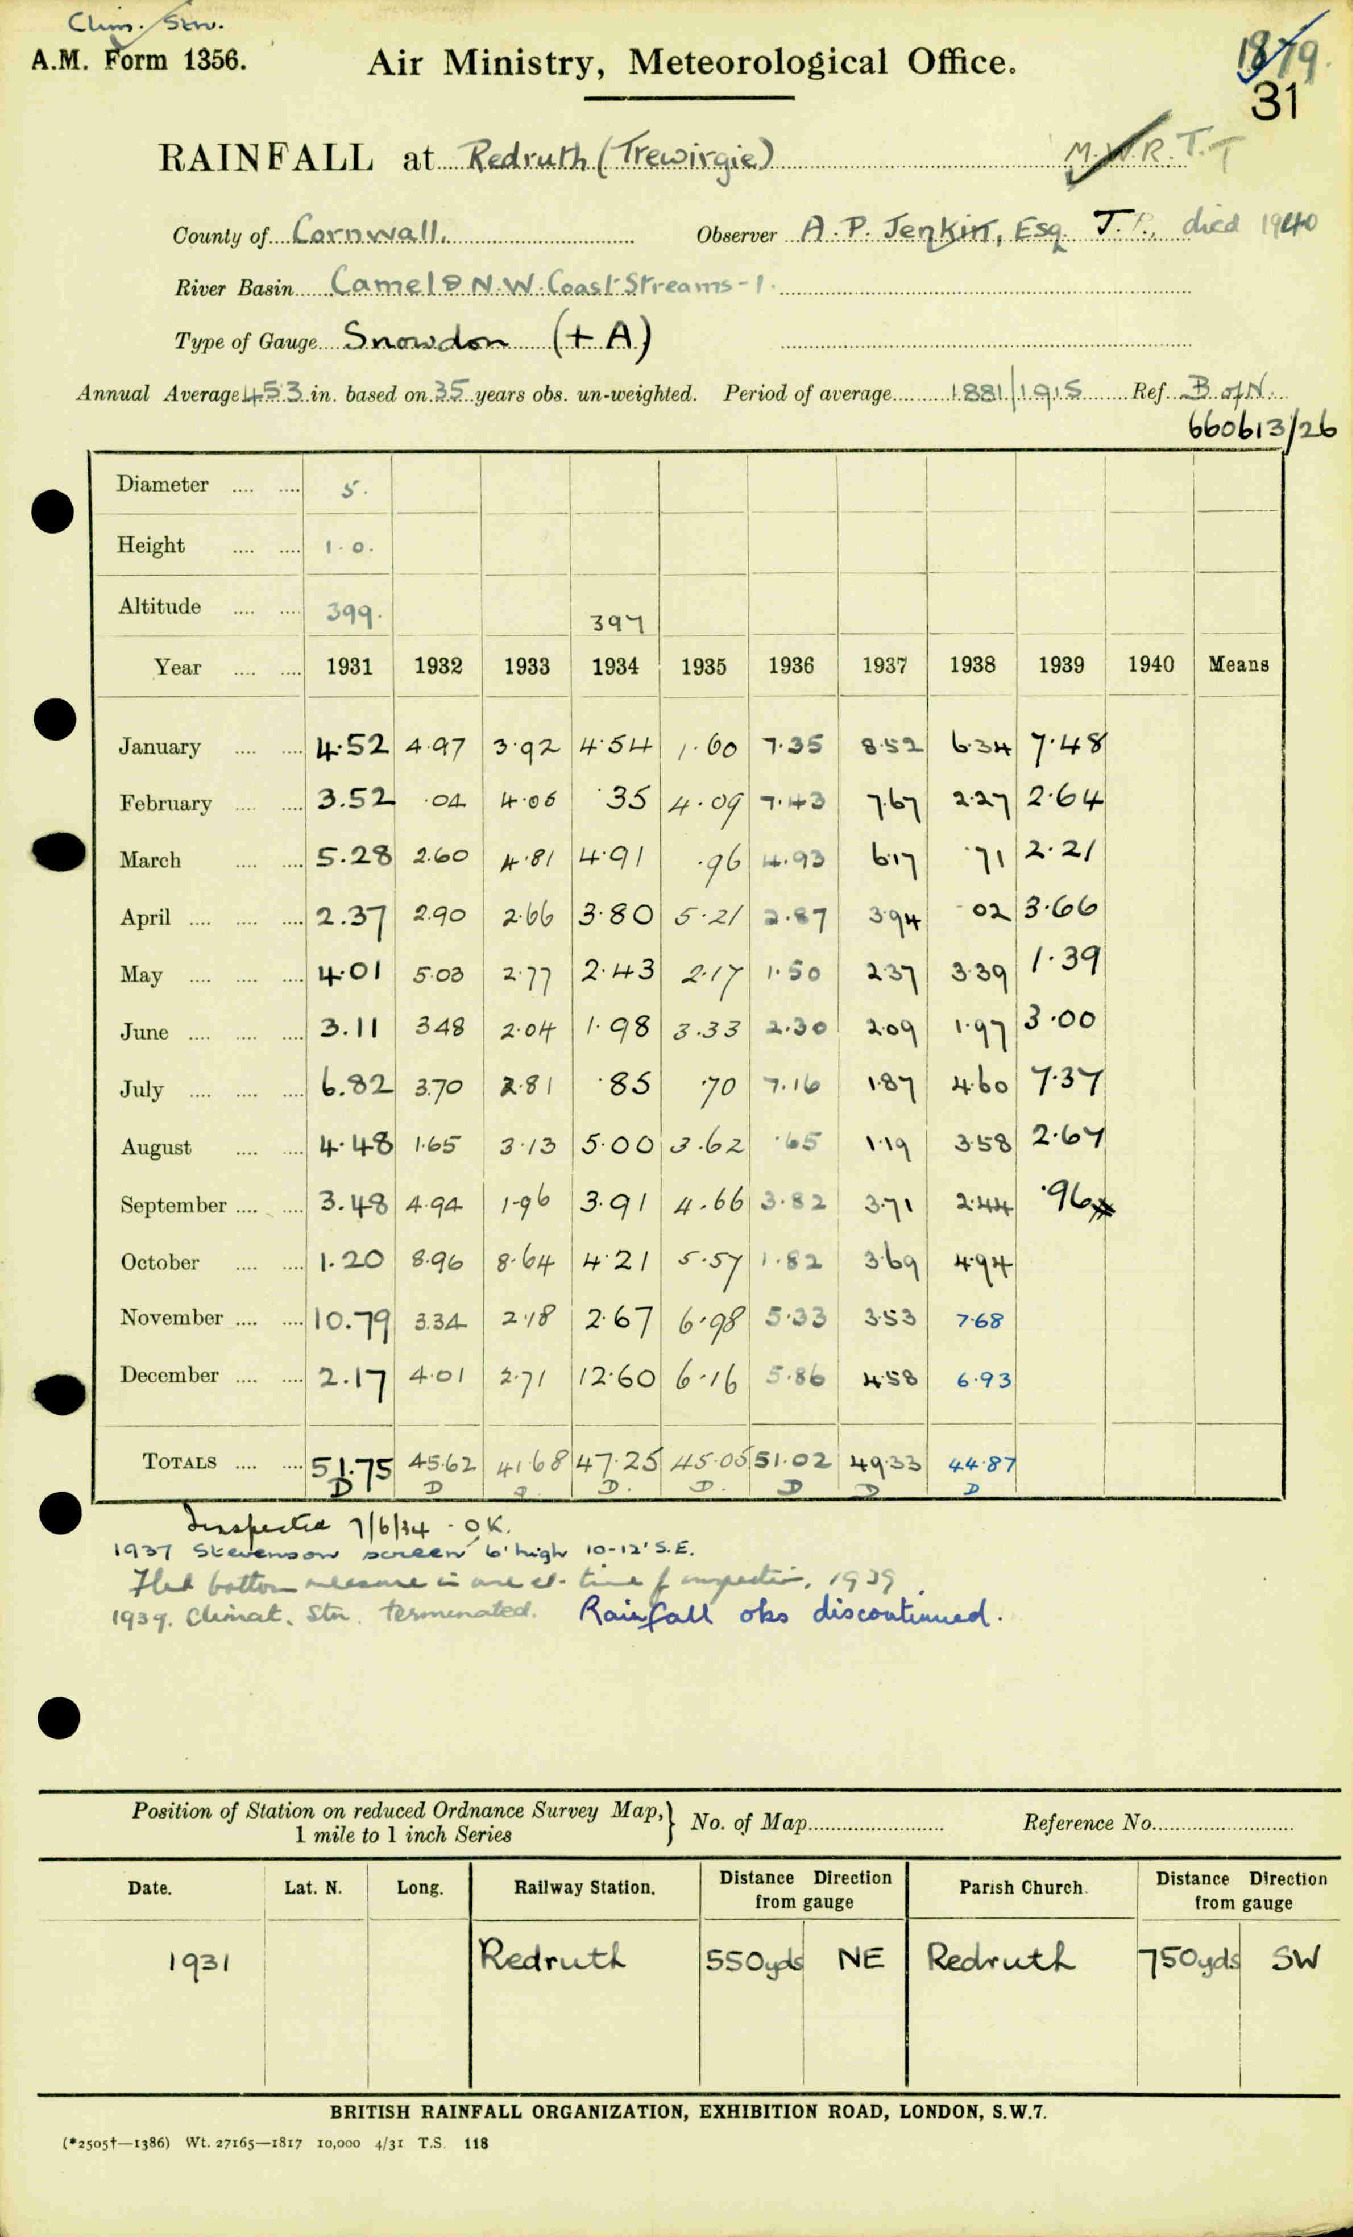 Clim. Stn.
A.M. Form 1356. Air Ministry, Meteorological Office. 1879.
31
RAINFALL at Redruth (Trewirgie) M.W.R.T.T
County of Cornwall. Observer A. P. Jenkin, Esq. J.P., died 1940
River Basin Camel & N.W. Coast Streams - 1.
Type of Gauge Snowdon (+ A)
Annual Average 45.3 in. based on 35 years obs. un-weighted. Period of average 1881/1915 Ref. B of N.
660613/26
Diameter .... .... 5.
Height .... .... 1.0.
Altitude .... .... 399. 397
Year .... .... 1931 1932 1933 1934 1935 1936 1937 1938 1939 1940 Means
January .... .... 4.52 4.97 3.92 4.54 1.60 7.35 8.52 6.34 7.48
February .... .... 3.52 .04 4.06 .35 4.09 7.43 7.67 2.27 2.64
March .... .... 5.28 2.60 4.81 4.91 .96 4.93 6.17 .71 2.21
April .... .... .... 2.37 2.90 2.66 3.80 5.21 2.87 3.94 .02 3.66
May .... .... .... 4.01 5.03 2.77 2.43 2.17 1.50 2.37 3.39 1.39
June .... .... .... 3.11 3.48 2.04 1.98 3.33 2.30 2.09 1.97 3.00
July .... .... .... 6.82 3.70 2.81 .85 .70 7.16 1.87 4.60 7.37
August .... .... 4.48 1.65 3.13 5.00 3.62 .65 1.19 3.58 2.67
September .... .... 3.48 4.94 1.96 3.91 4.66 3.82 3.71 2.44 .96
October .... .... 1.20 8.96 8.64 4.21 5.57 1.82 3.69 4.94
November .... .... 10.79 3.34 2.18 2.67 6.98 5.33 3.53 7.68
December .... .... 2.17 4.01 2.71 12.60 6.16 5.86 4.58 6.93
TOTALS .... .... 51.75 45.62 41.68 47.25 45.05 51.02 49.33 44.87
D D D. D. D D D
Inspected 7/6/34 - OK.
1937 Stevenson screen 6' high 10-12' S.E.
Flat bottom measure in use at time of inspection, 1939.
1939. Climat. Stn. terminated. Rainfall obs discontinued.
Position of Station on reduced Ordnance Survey Map, } No. of Map Reference No.
1 mile to 1 inch Series
Date. Lat. N. Long. Railway Station. Distance Direction from gauge Parish Church. Distance Direction from gauge
1931 Redruth 550yds NE Redruth 750yds SW
BRITISH RAINFALL ORGANIZATION, EXHIBITION ROAD, LONDON, S.W.7.
(*2505†—1386) Wt. 27165—1817 10,000 4/31 T.S. 118